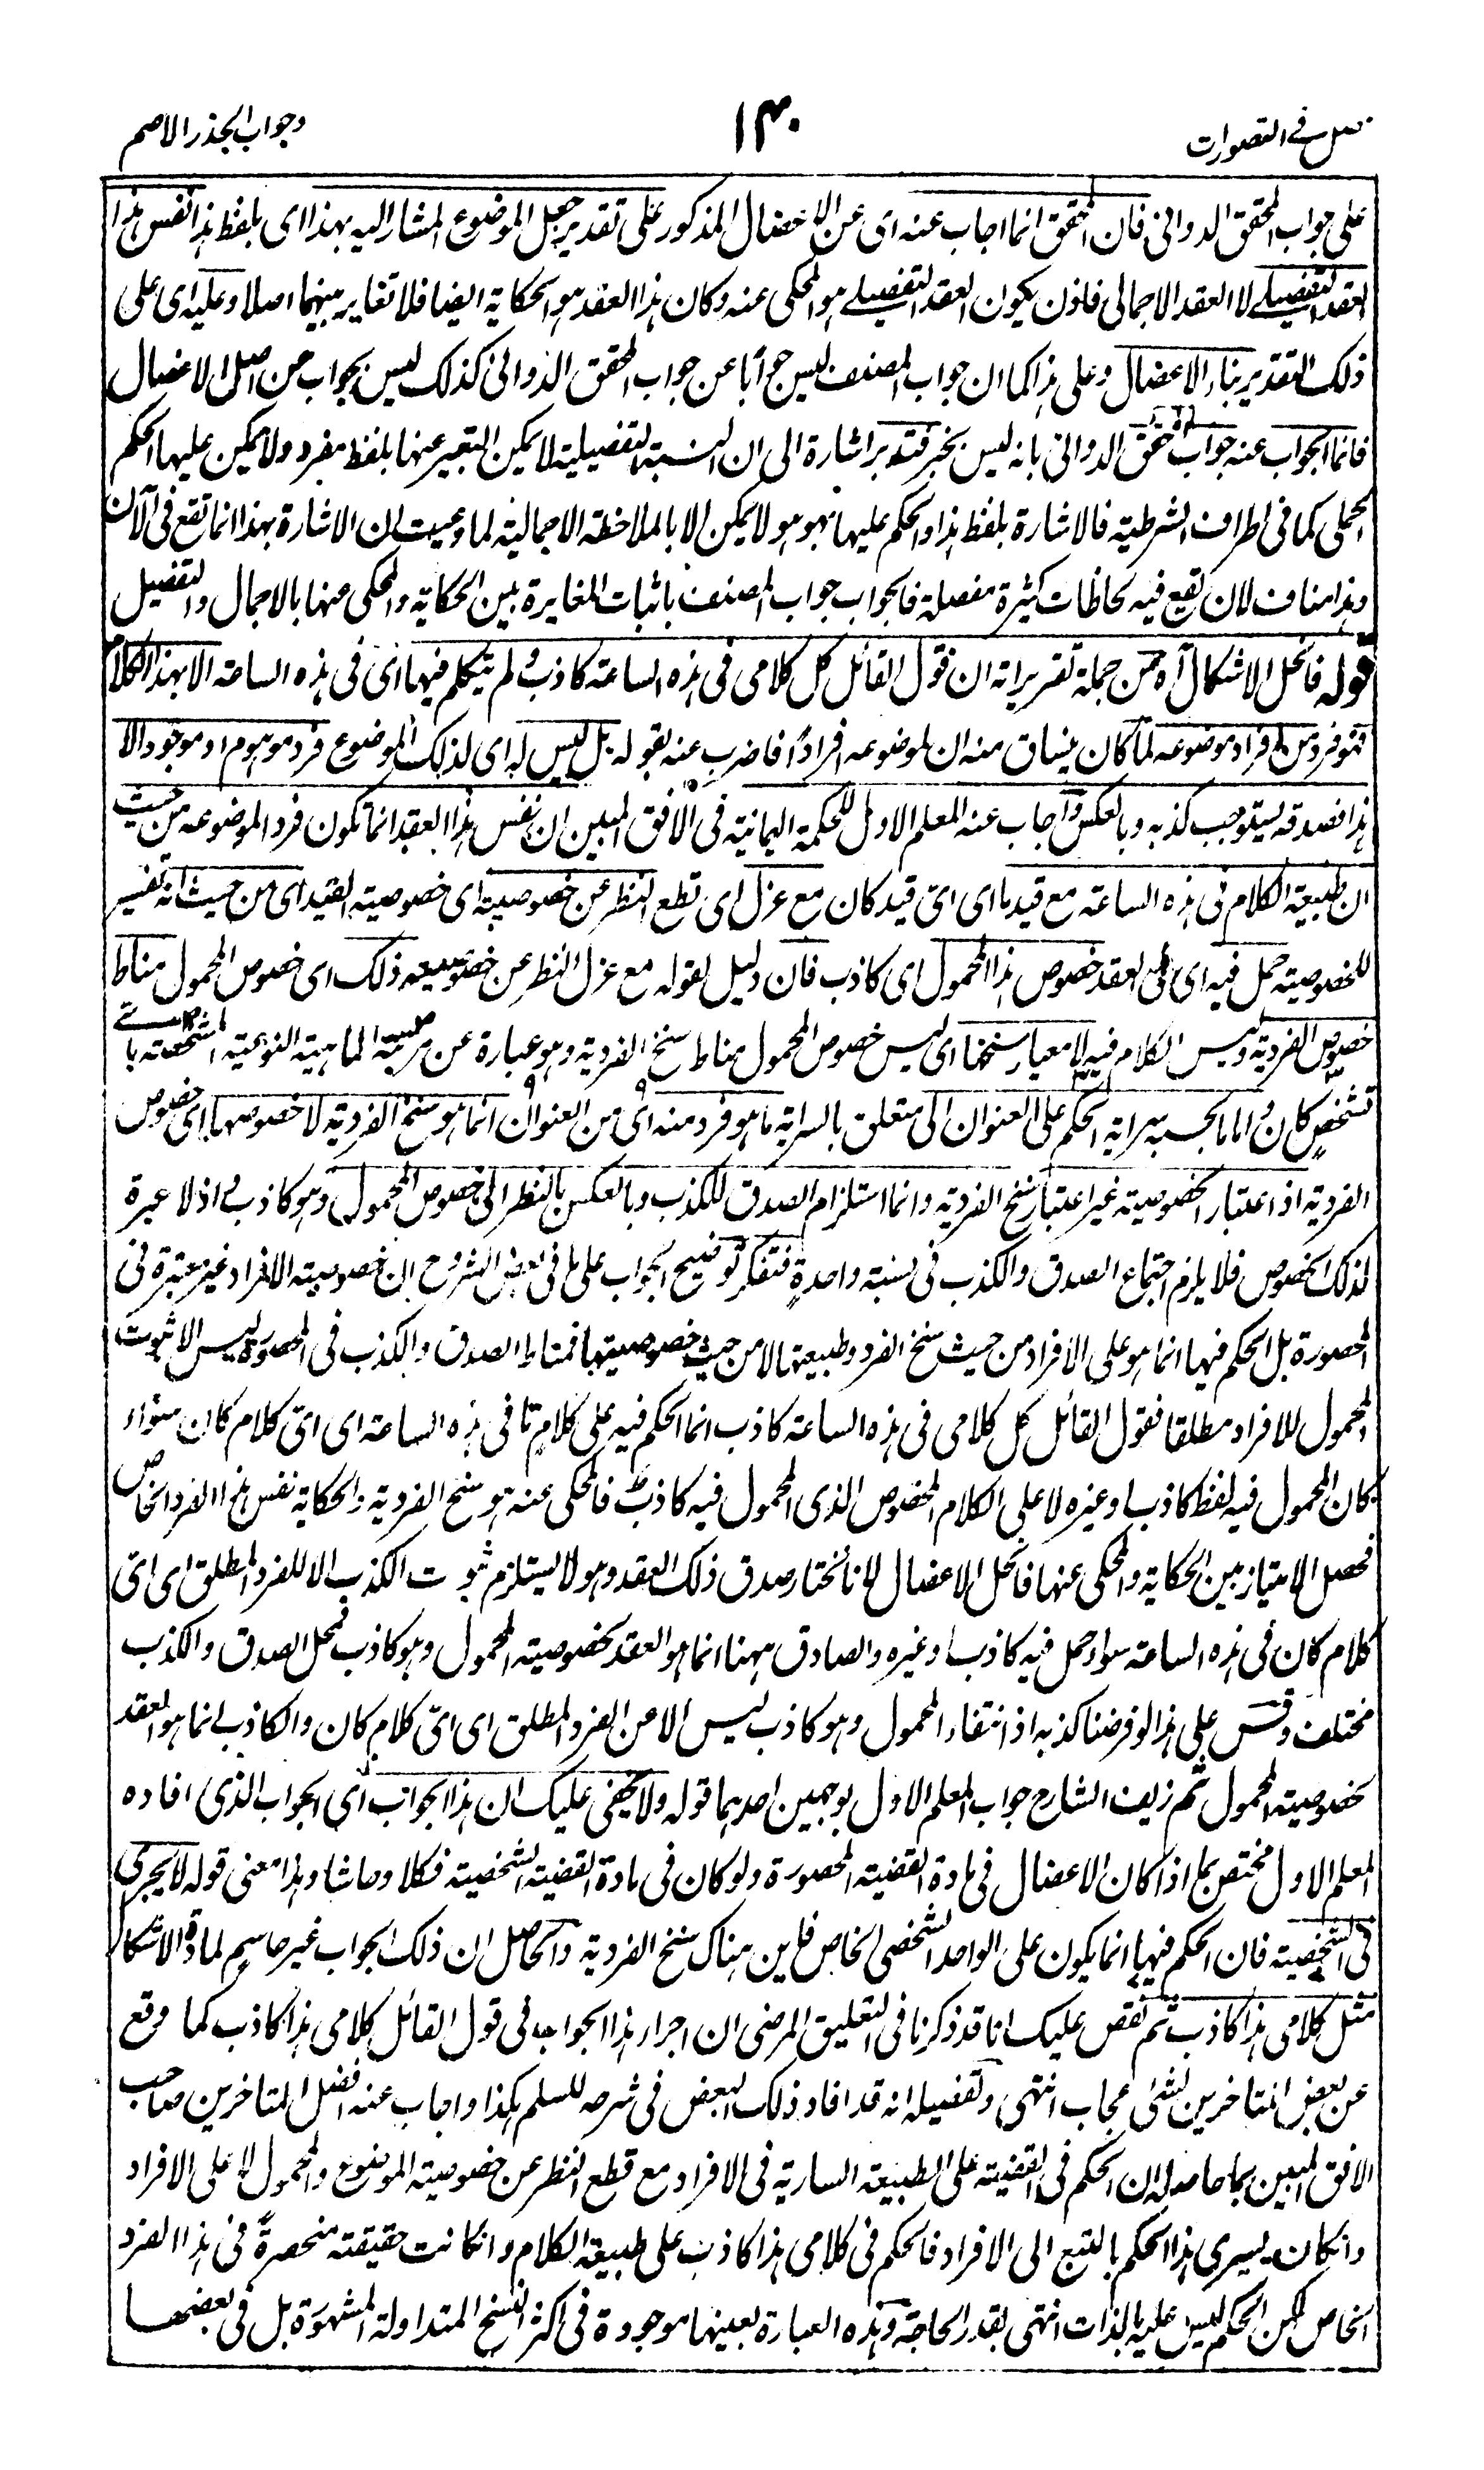 فصل في التصورات
١٤٠
وجواب الجذر الاصم
على جواب المحقق الدواني فان المحقق انما اجاب عنه اى عن الاعضال المذكور على تقدير جعل الموضوع المشار اليه بهذا اى بلفظ هذا نفس هذا
العقد التفصيلے لا العقد الاجمالى فاذن يكون العقد التفصيلے هو المحكى عنه وكان هذا العقد هو الحكاية ايضا فلا تغاير بينهما اصلا وعليه اى على
ذلك التقدير بناء الاعضال وعلى هذا كما ان جواب المصنف ليس جوابا عن جواب المحقق الدوانى كذلك ليس بجواب عن اصل الاعضال
فانما الجواب عنه جواب المحقق الدوانى بانه ليس بخبر فتدبر اشارة الى ان النسبة التفصيلية لا يمكن التعبير عنها بلفظ مفرد ولا يمكن عليها الحكم
الحملى كما فى اطراف الشرطية فالاشارة بلفظ هذا والحكم عليها بهو هو لا يمكن الا بالملاحظة الاجمالية لما وعيت ان الاشارة بهذا انما تقع فى الآن
وهذا مناف لان تقع فيه لحاظات كثيرة مفصلة فالجواب جواب المصنف باثبات المغايرة بين الحكاية والمحكى عنها بالاجمال والتفصيل
قوله فانحل الاشكال آه من جملة تقريراته ان قول القائل كل كلامى فى هذه الساعة كاذب ولم يتكلم فيها اى فى هذه الساعة الا بهذا الكلام
فهو فرد من افراد موضوعه لما كان ينساق منه ان لموضوعه افرادًا فاضرب عنه بقوله بل ليس له اى لذلك الموضوع فرد موهوم او موجود الا
هذا فصدقه يستوجب كذبه وبالعكس واجاب عنه المعلم الاول للحكمة اليمانية فى الافق المبين ان نفس هذا العقد انما تكون فرد الموضوعه من حيث
ان طبيعة الكلام فى هذه الساعة مع قيد ما اى اىّ قيد كان مع عزل اى قطع النظر عن خصوصيته اى خصوصية القيد اى من حيث انه تفسير
للخصوصية حمل فيه اى فى العقد خصوص هذا المحمول اى كاذب فان دليل لقوله مع عزل النظر عن خصوصيته ذلك اى خصوص المحمول مناط
خصوص الفردية وليس الكلام فيه لا معيار سنخها اى ليس خصوص المحمول مناط سنخ الفردية وهو عبارة عن طبيعة الماهية النوعية المتشخصة باى
تشخصٍ كان واما ما بحسبه سراية الحكم على العنوان الى متعلق بالسراية ما هو فرد منه اى من العنوان انما هو سنخ الفردية لا خصوصها اى خصوص
الفردية اذ اعتبار الخصوصية غير اعتبار سنخ الفردية وانما استلزام الصدق للكذب وبالعكس بالنظر الى خصوص المحمول وهو كاذب اذ لا عبرة
لذلك الخصوص فلا يلزم اجتماع الصدق والكذب فى نسبة واحدةٍ فتفكر توضيح الجواب على ما فى بعض الشروح ان خصوصية الافراد غير معتبرة فى
المحصورة بل الحكم فيها انما هو على الافراد من حيث سنخ الفرد وطبيعتها لا من حيث خصوصيتها فمناط الصدق والكذب فى المحصورة ليس الا ثبوت
المحمول للافراد مطلقا فقول القائل كل كلامى فى هذه الساعة كاذب انما الحكم فيه على كلامٍ ما فى هذه الساعة اى اىّ كلام كان سواء
كان المحمول فيه لفظ كاذب او غيره لا على الكلام المخصوص الذى المحمول فيه كاذب فالمحكى عنه هو سنخ الفردية والحكاية نفس هذا الفرد الخاص
فحصل الامتياز بين الحكاية والمحكى عنها فانحل الاعضال لانا نختار صدق ذلك العقد وهو لا يستلزم ثبوت الكذب الا للفرد المطلق اى اىّ
كلام كان فى هذه الساعة سواء حمل فيه كاذب او غيره والصادق ههنا انما هو العقد بخصوصية المحمول وهو كاذب فمحل الصدق والكذب
مختلف وقس على هذا لو فرضنا كذبه اذ انتفاء المحمول وهو كاذب ليس الا عن الفرد المطلق اى اىّ كلام كان والكاذب انما هو العقد
بخصوصية المحمول ثم زيف الشارح جواب المعلم الاول بوجهين احدهما قوله ولا يخفى عليك ان هذا الجواب اى الجواب الذى افاده
المعلم الاول مختص بما اذا كان الاعضال فى مادة القضية المحصورة ولو كان فى مادة القضية الشخصية فكلا وحاشا وهذا معنى قوله لا يجرى
فى الشخصية فان الحكم فيها انما يكون على الواحد الشخصى الخاص فاين هناك سنخ الفردية والحاصل ان ذلك الجواب غير حاسم لمادة الاشكال
مثل كلامى هذا كاذب ثم نقص عليك انا قد ذكرنا فى التعليق المرضى ان اجراء هذا الجواب فى قول القائل كلامى هذا كاذب كما وقع
عن بعض المتاخرين لشئ عجاب انتهى وتفصيله انه قد افاد ذلك البعض فى شرحه للسلم هكذا واجاب عنه افضل المتاخرين صاحب
الافق المبين بما حاصله ان الحكم فى القضية على الطبيعة السارية فى الافراد مع قطع النظر عن خصوصية الموضوع والمحمول لا على الافراد
وانكان يسرى هذا الحكم بالتبع الى الافراد فالحكم فى كلامى هذا كاذب على طبيعة الكلام وانكانت حقيقته منحصرةً فى هذا الفرد
الخاص لكن الحكم ليس عليه بالذات انتهى بقدر الحاجة وهذه العبارة بعينها موجودة فى اكثر النسخ المتداولة المشهورة بل فى بعضها